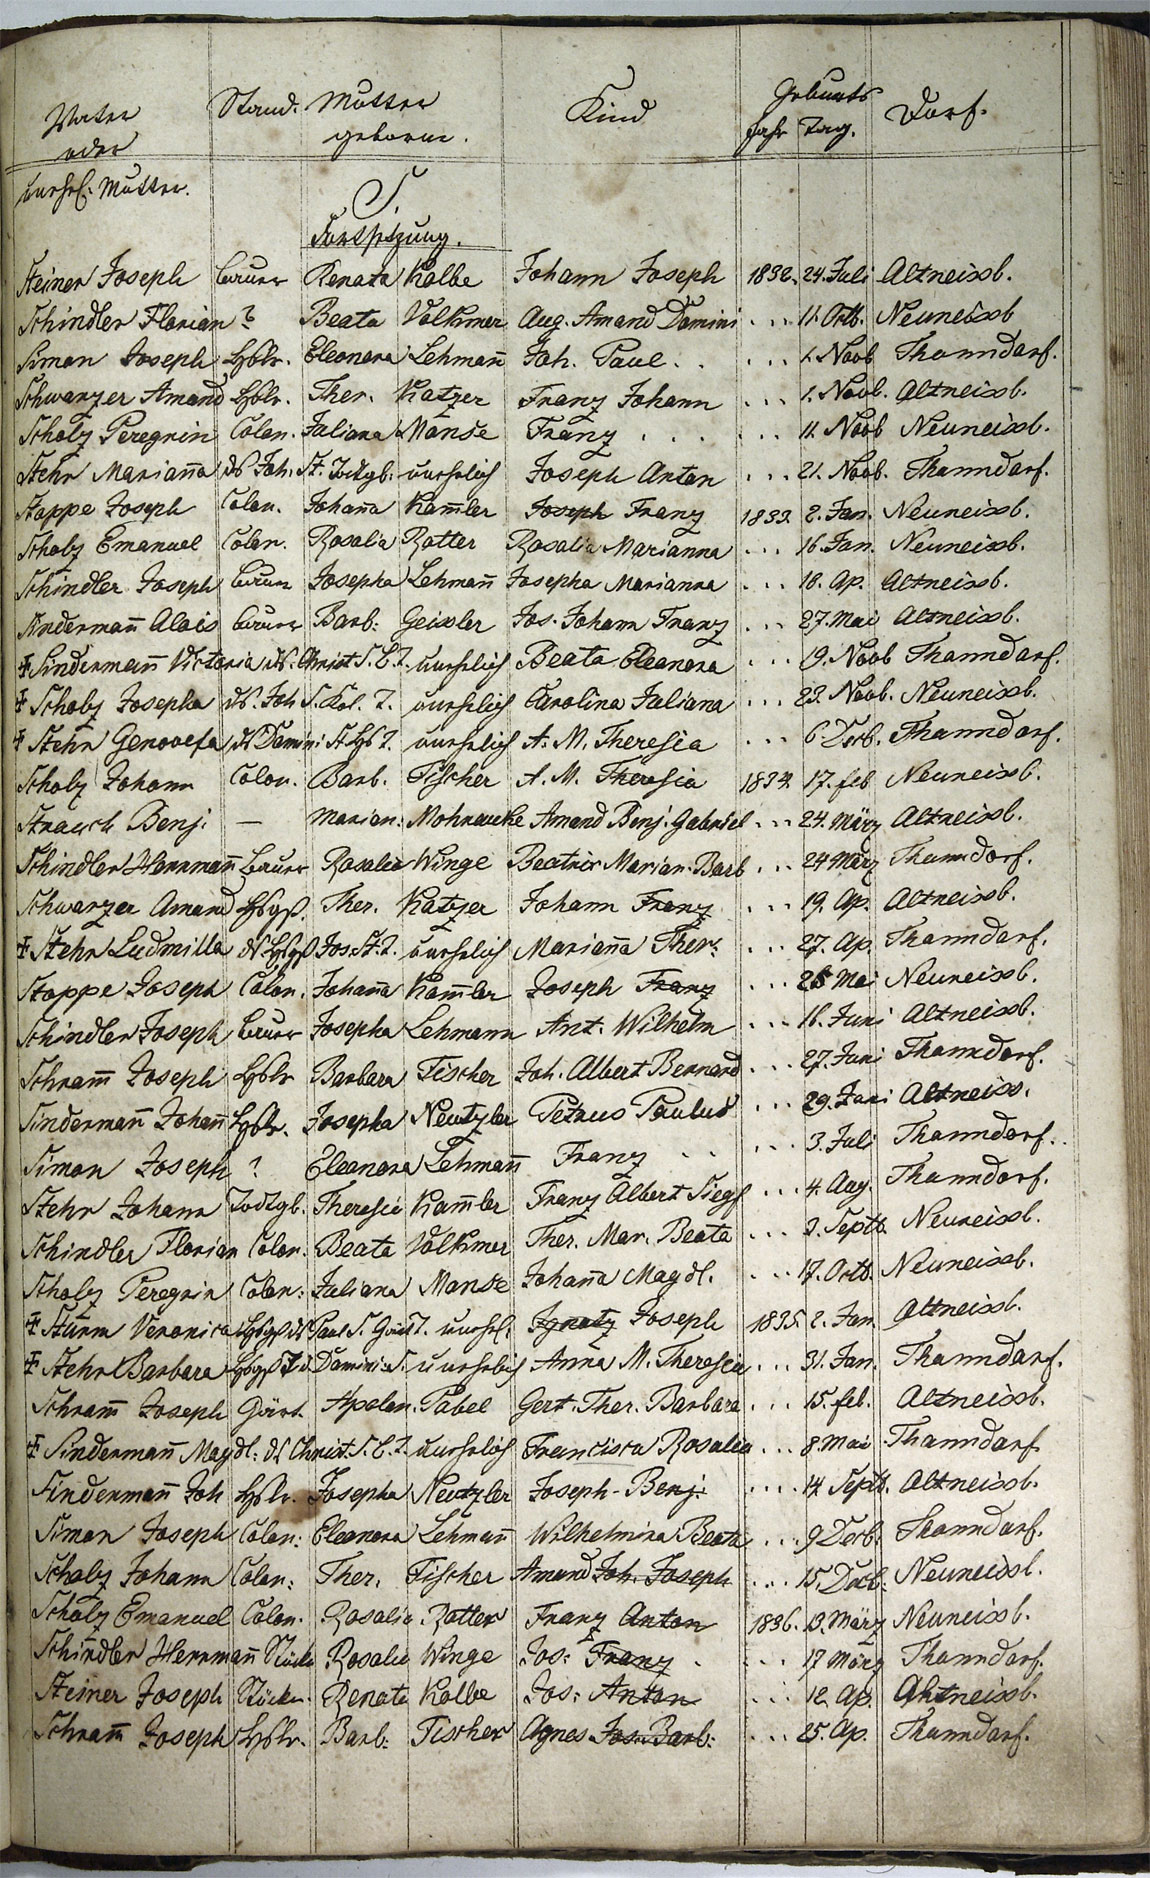 Vater Stand. Mutter Kind Geburts Dorf.
oder geborne. Jahr Tag.
unehel: Mutter.
S.
Fortsetzung.
Steiner Joseph Bauer Renata Kolbe Johann Joseph 1832. 24. Juli Altneissb.
Schindler Florian ? Beata Volkmer Aug. Amand Domini ... 11. Octb. Neuneissb
Simon Joseph Hslr. Eleonora Lehmañ Joh. Paul. . ... 1. Novb Thanndorf.
Schwarzer Amand Hslr. Ther. Katzer Franz Johann ... 1. Novb. Altneissb.
Scholz Peregrin Colon. Juliana Manse Franz . . . ... 11. Novb Neuneissb.
Stehr Mariaña ds Joh. St. Todtgb. unehelich Joseph Anton ... 21. Novb. Thanndorf.
Stappe Joseph Colon. Johaña Kam̃ler Joseph Franz 1833. 2. Jan. Neuneissb.
Scholz Emanuel Colon. Rosalia Rotter Rosalia Marianna ... 16. Jan. Neuneissb.
Schindler Joseph Bauer Josepha Lehmañ Josepha Marianna ... 18. Ap. Altneissb.
Sindermañ Alois Bauer Barb: Geissler Jos. Johann Franz ... 27. Mai Altneissb.
‡ Sindermañ Victoria ds. Christ S. T. unehelich Beata Eleanora ... 19. Novb Thanndorf.
‡ Scholz Josepha ds. Joh S. Kol. T. unehelich Carolina Juliana ... 23. Novb. Neuneissb.
‡ Stehr Genovefa ds Domini St Hs T. unehelich A. M. Theresia ... 6. Decb. Thanndorf.
Scholz Johann Colon. Barb. Fischer A. M. Theresia 1834. 17. feb Neuneissb.
Strauch Benj: — Marian: Mohraucke Amand Benj. Gabriel ... 24. März Altneissb.
Schindler Herrmañ Bauer Rosalia Winge Beatrix Marian. Barb ... 24 März Thanndorf.
Schwarzer Amand Ther. Katzer Johann Franz ... 19. Ap. Altneissb.
‡ Stehr Ludmilla ds Jos. St. T. unehelich Mariaña Ther: ... 27. Ap. Thanndorf.
Stappe Joseph Colon. Johaña Kam̃ler Joseph Franz ... 28 Mai Neuneissb.
Schindler Joseph Bauer Josepha Lehmann Ant. Wilhelm ... 16. Juni Altneissb.
Schram̃ Joseph Hslr Barbara Fischer Joh. Albert Bernard ... 27. Juni Thanndorf.
Sindermañ Johañ Hslr. Josepha Neutzler Petrus Paulus ... 29. Juni Altneiss.
Simon Joseph ? Eleanora Lehmañ Franz . . ... 3. Juli Thanndorf.
Stehr Johann Todtgb. Theresia Kam̃ler Franz Albert Siegf ... 4. Aug. Thanndorf.
Schindler Florian Colon. Beata Volkmer Ther. Mar. Beata ... 3. Septb. Neuneissb.
Scholz Peregrin Colon: Juliana Manse Johaña Magdl. ... 17. Octb. Neuneissb.
‡ Sturm Veronica ds Paul S. T. unehel: Ignatz Joseph 1835. 2. Jan. Altneissb.
‡ Stehr Barbara Domini: S. unehelich Aña M. Theresia ... 31. Jan. Thanndorf.
Schram̃ Joseph Gärt. Apolon. Pabel Gert. Ther. Barbara ... 15. feb. Altneissb.
‡ Sindermañ Magdl: ds Christ. S. T. unehelich Francisca Rosalia ... 8. Mai Thanndorf
Sindermañ Joh Hslr. Josepha Neutzler Joseph Benj: ... 14. Septb. Altneissb.
Simon Joseph Colon: Eleanora Lehmañ Wilhelmina Beata ... 9 Decb. Thanndorf.
Scholz Johann Colon: Ther. Fischer Amand Joh. Joseph ... 15. Decb: Neuneissb.
Scholz Emanuel Colon. Rosalia Rotter Franz Anton 1836. 13. März Neuneissb.
Schindler Herrmañ Stückr Rosalia Winge Jos: Franz . ... 17 März Thanndorf.
Steiner Joseph Stückr. Renata Kolbe Jos: Anton ... 12. Ap. Altneissb.
Schram̃ Joseph Hslr. Barb: Fischer Agnes Jos. Barb: ... 25. Ap. Thanndorf.